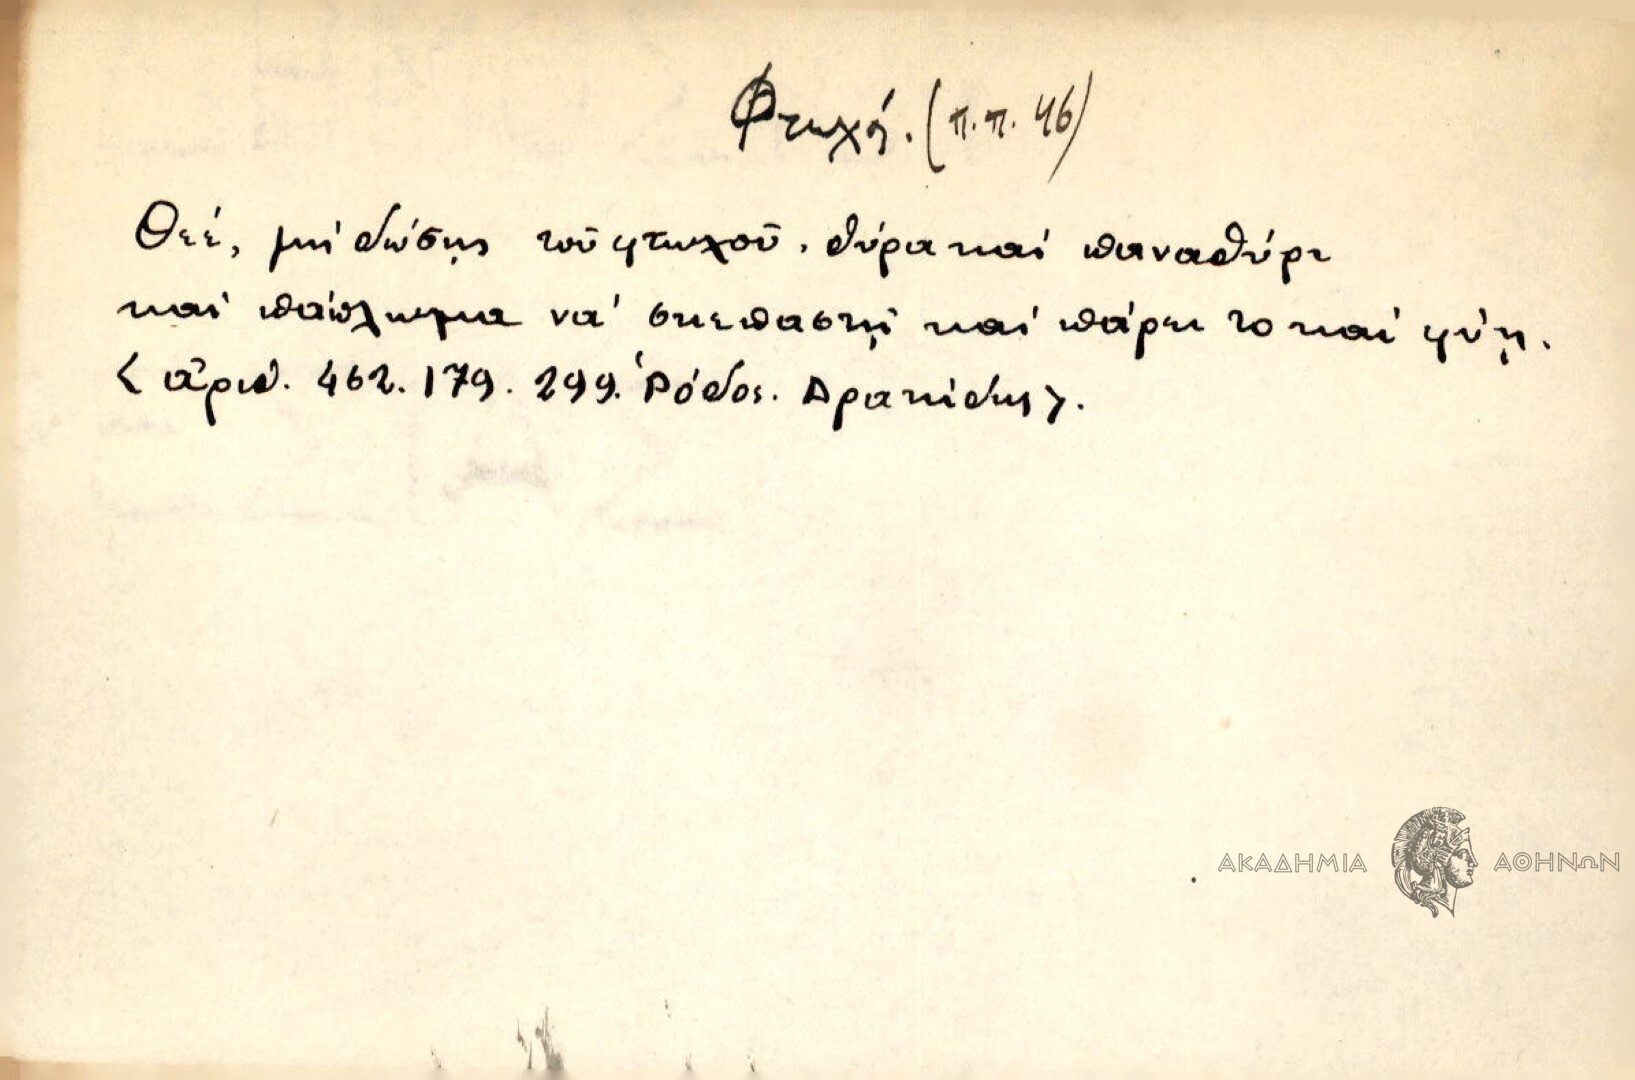 Φτωχός. (π.π. 46)
Θεέ, μὴ δώσῃς τοῦ φτωχοῦ, θύρα καὶ παναθύρι
καὶ πάπλωμα νὰ σκεπαστῇ καὶ πάρει το καὶ φύῃ.
< ἀριθ. 462. 179. 299. Ῥόδος. Δρακίδης >.
ΑΚΑΔΗΜΙΑ ΑΘΗΝΩΝ